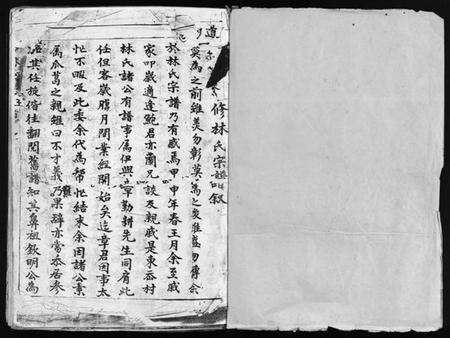 修林氏宗譜叙
莫為之前雖美勿彰莫為之後雖盛勿傳余
於林氏宗譜乃有感焉甲申年春王月余至戚
家叩歲適逢鮑君亦蘭兄談及親戚是東岙村
林氏諸公有譜事屬伊與章勤耕先生同肩此
任但客歲臘月間業經開始矣迄章君因事太
忙不暇及此委余代為幫忙結末余因諸公素
屬瓜葛之親雖曰不才義乃果辭亦當忝居參
任其後偕往翻閱舊譜知其鼻祖欽明公為